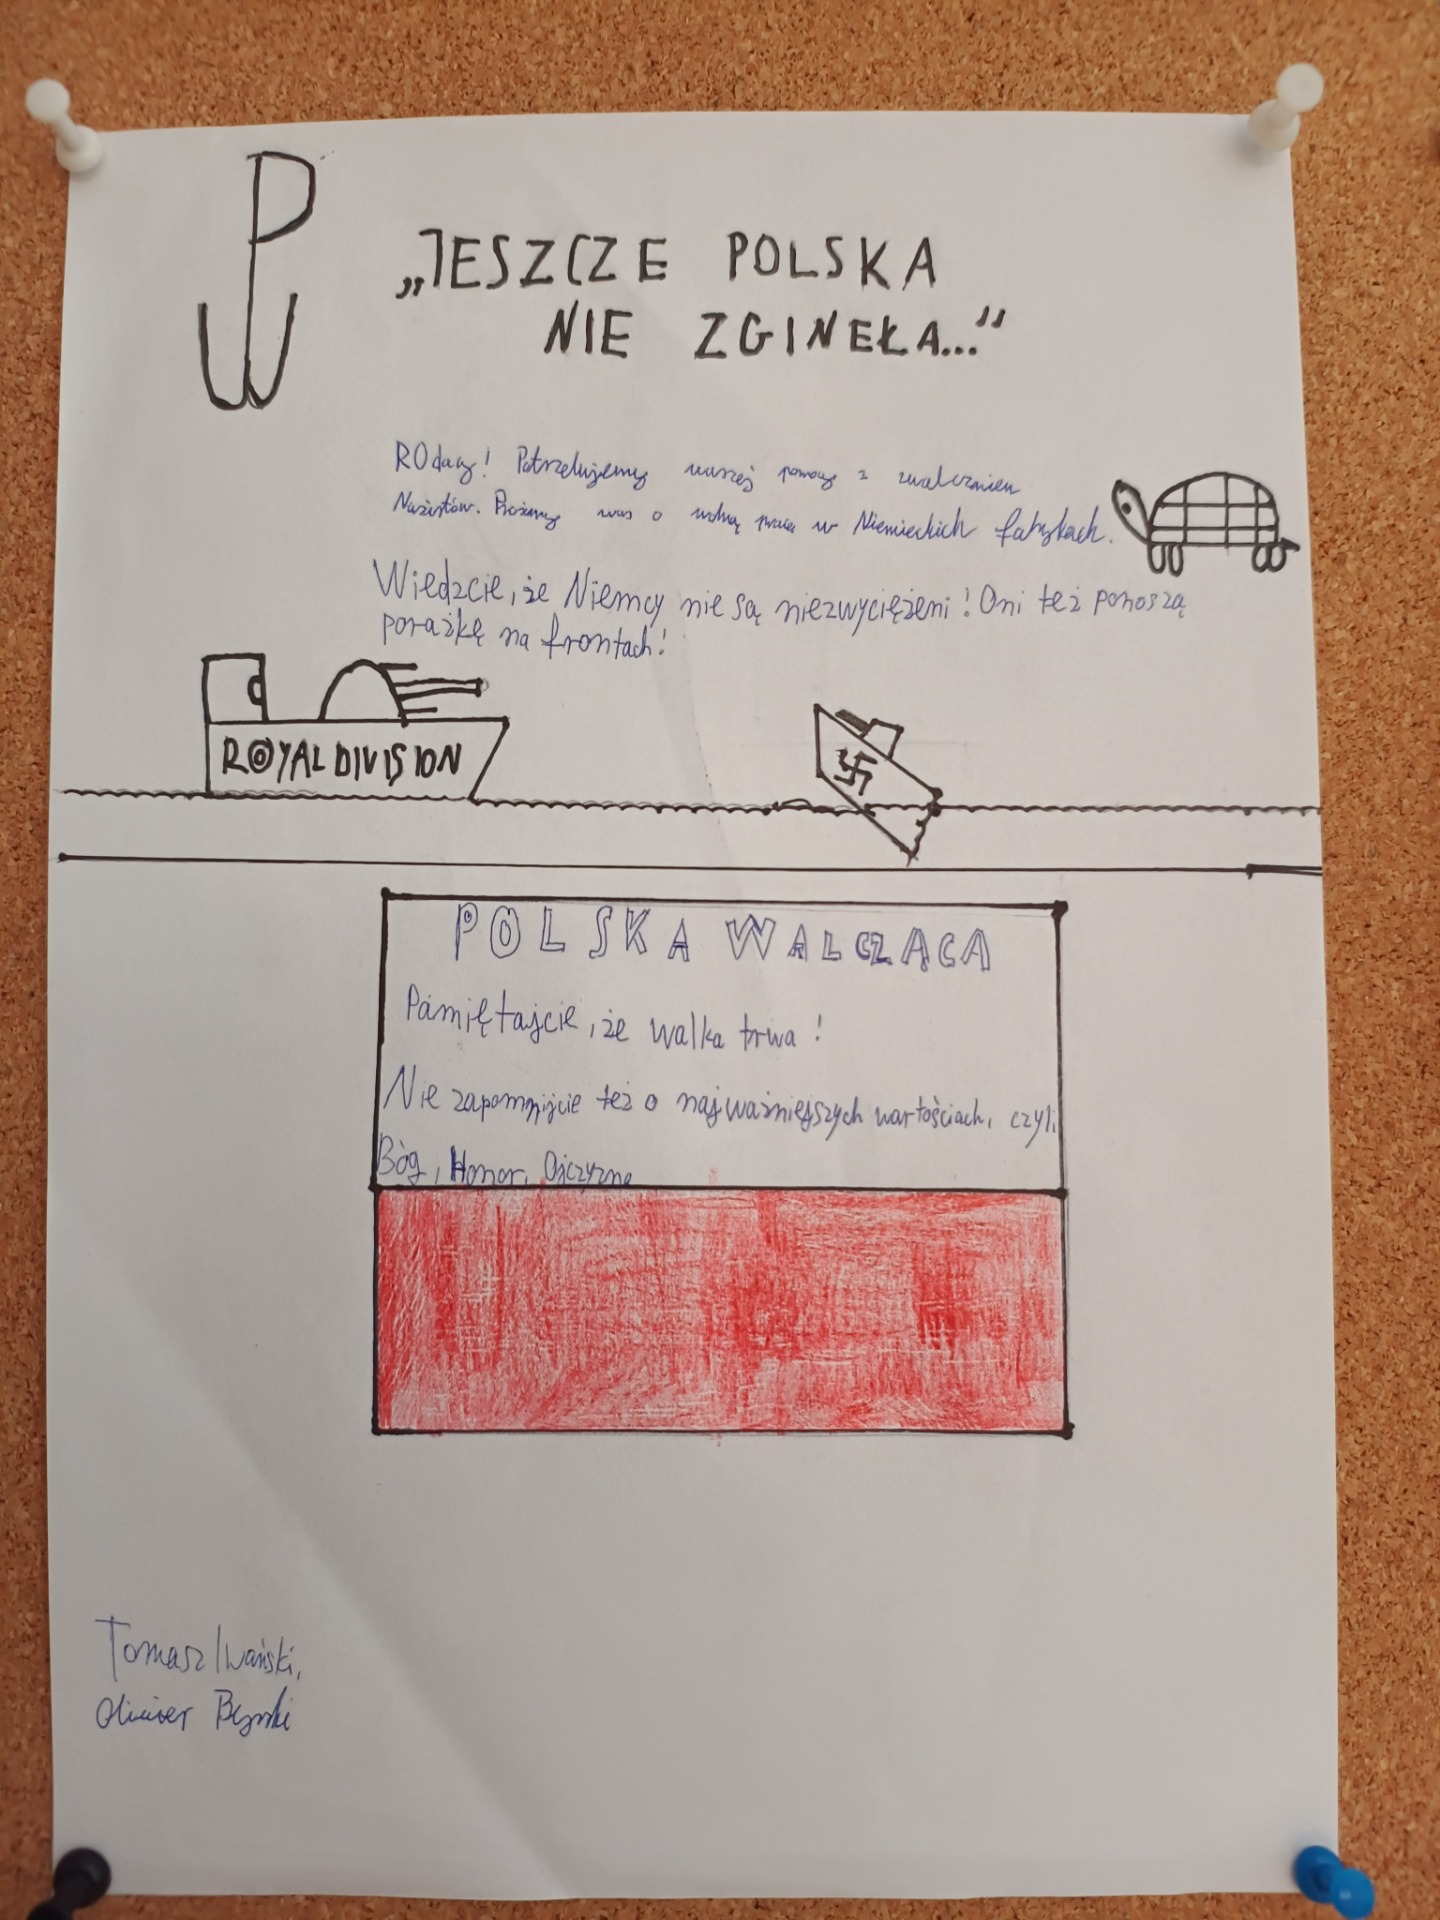 PW
„JESZCZE POLSKA
NIE ZGINEŁA..."
ROdacy! Potrzebujemy waszej pomocy z zwalczeniem
Nazistów. Prosimy was o wolną pracę w Niemieckich fabrykach.
Wiedzcie, że Niemcy nie są niezwyciężeni! Oni też ponoszą
porażkę na frontach!
ROYAL DIVISION
POLSKA WALCZĄCA
Pamiętajcie, że walka trwa!
Nie zapomnijcie też o najważniejszych wartościach, czyli
Bóg, Honor, Ojczyzna
Tomasz Iwański,
Oliwier